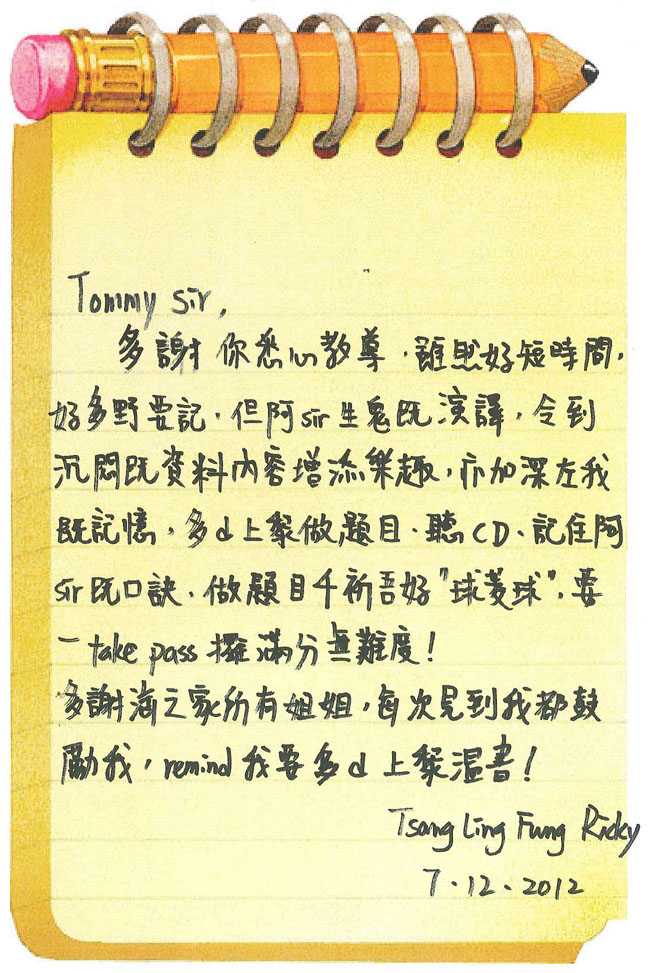 Tommy Sir,
多謝你悉心教導，雖然好短時間，
好多野要記，但阿sir生鬼既演譯，令到
沉悶既資料內容增添樂趣，亦加深左我
既記憶，多d上黎做題目、聽CD、記住阿
sir既口訣，做題目千祈吾好"球菱球"，要
一take pass攞滿分無難度！
多謝海之家所有姐姐，每次見到我都鼓
勵我，remind我要多d上黎溫書！
Tsang Ling Fung Ricky
7.12.2012